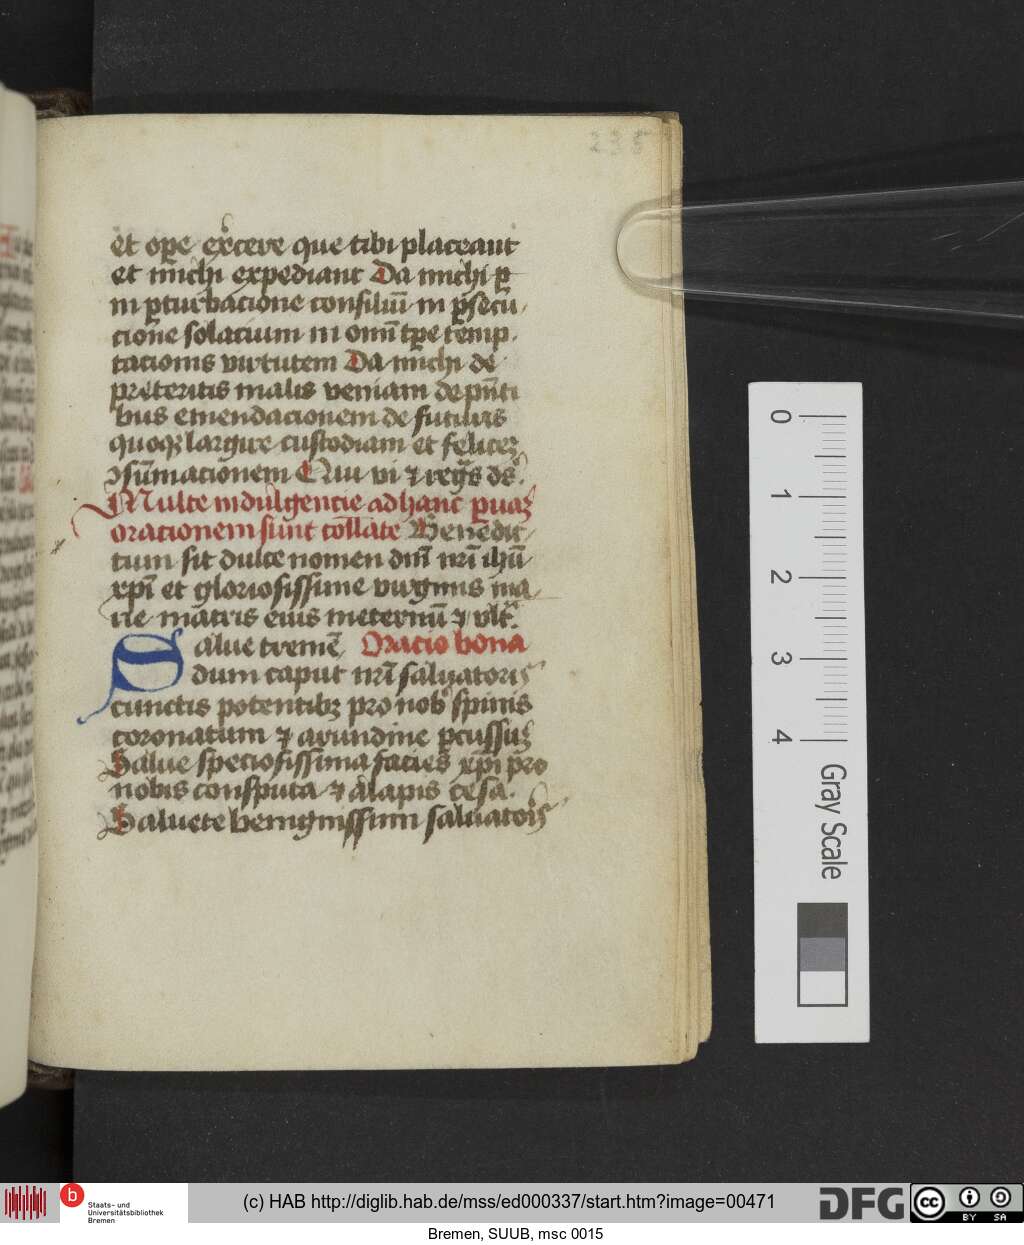 235
et ope excere que tibi placeant
et michi expediant Da michi ꝑ
in ꝑturbacione consiliū in ꝑsecu
cione solacium in omī tꝑe temp
tacionis virtutem Da michi de
preteritis malis veniam de pn̄ti
bus emendacionem de futuris
quoqꝫ largire custodiam et felicēꝫ
ꝯsūmacionem Qui vi ⁊ regꝰs ds
Multe indulgencie ad hanc ꝑuaꝫ
orationem sunt collate Benedic
tum sit dulce nomen dnī nrī ihū
xpī et gloriosissime virginis ma
rie matris eius ineternū ⁊ vltᵃ
Salue tremē Oracio bona
dum caput nrī saluatoris
cunctis potentibꝫ pro nobꝰ spinis
coronatum ⁊ arundine ꝑcussuꝫ
Salue speciosissima facies xpī pro
nobis consputa ⁊ alapis cesa.
Saluete benignissimi saluatoris
0
1
2
3
4
Gray Scale
b
Staats- und
Universitätsbibliothek
Bremen
(c) HAB http://diglib.hab.de/mss/ed000337/start.htm?image=00471
DFG
cc BY SA
Bremen, SUUB, msc 0015